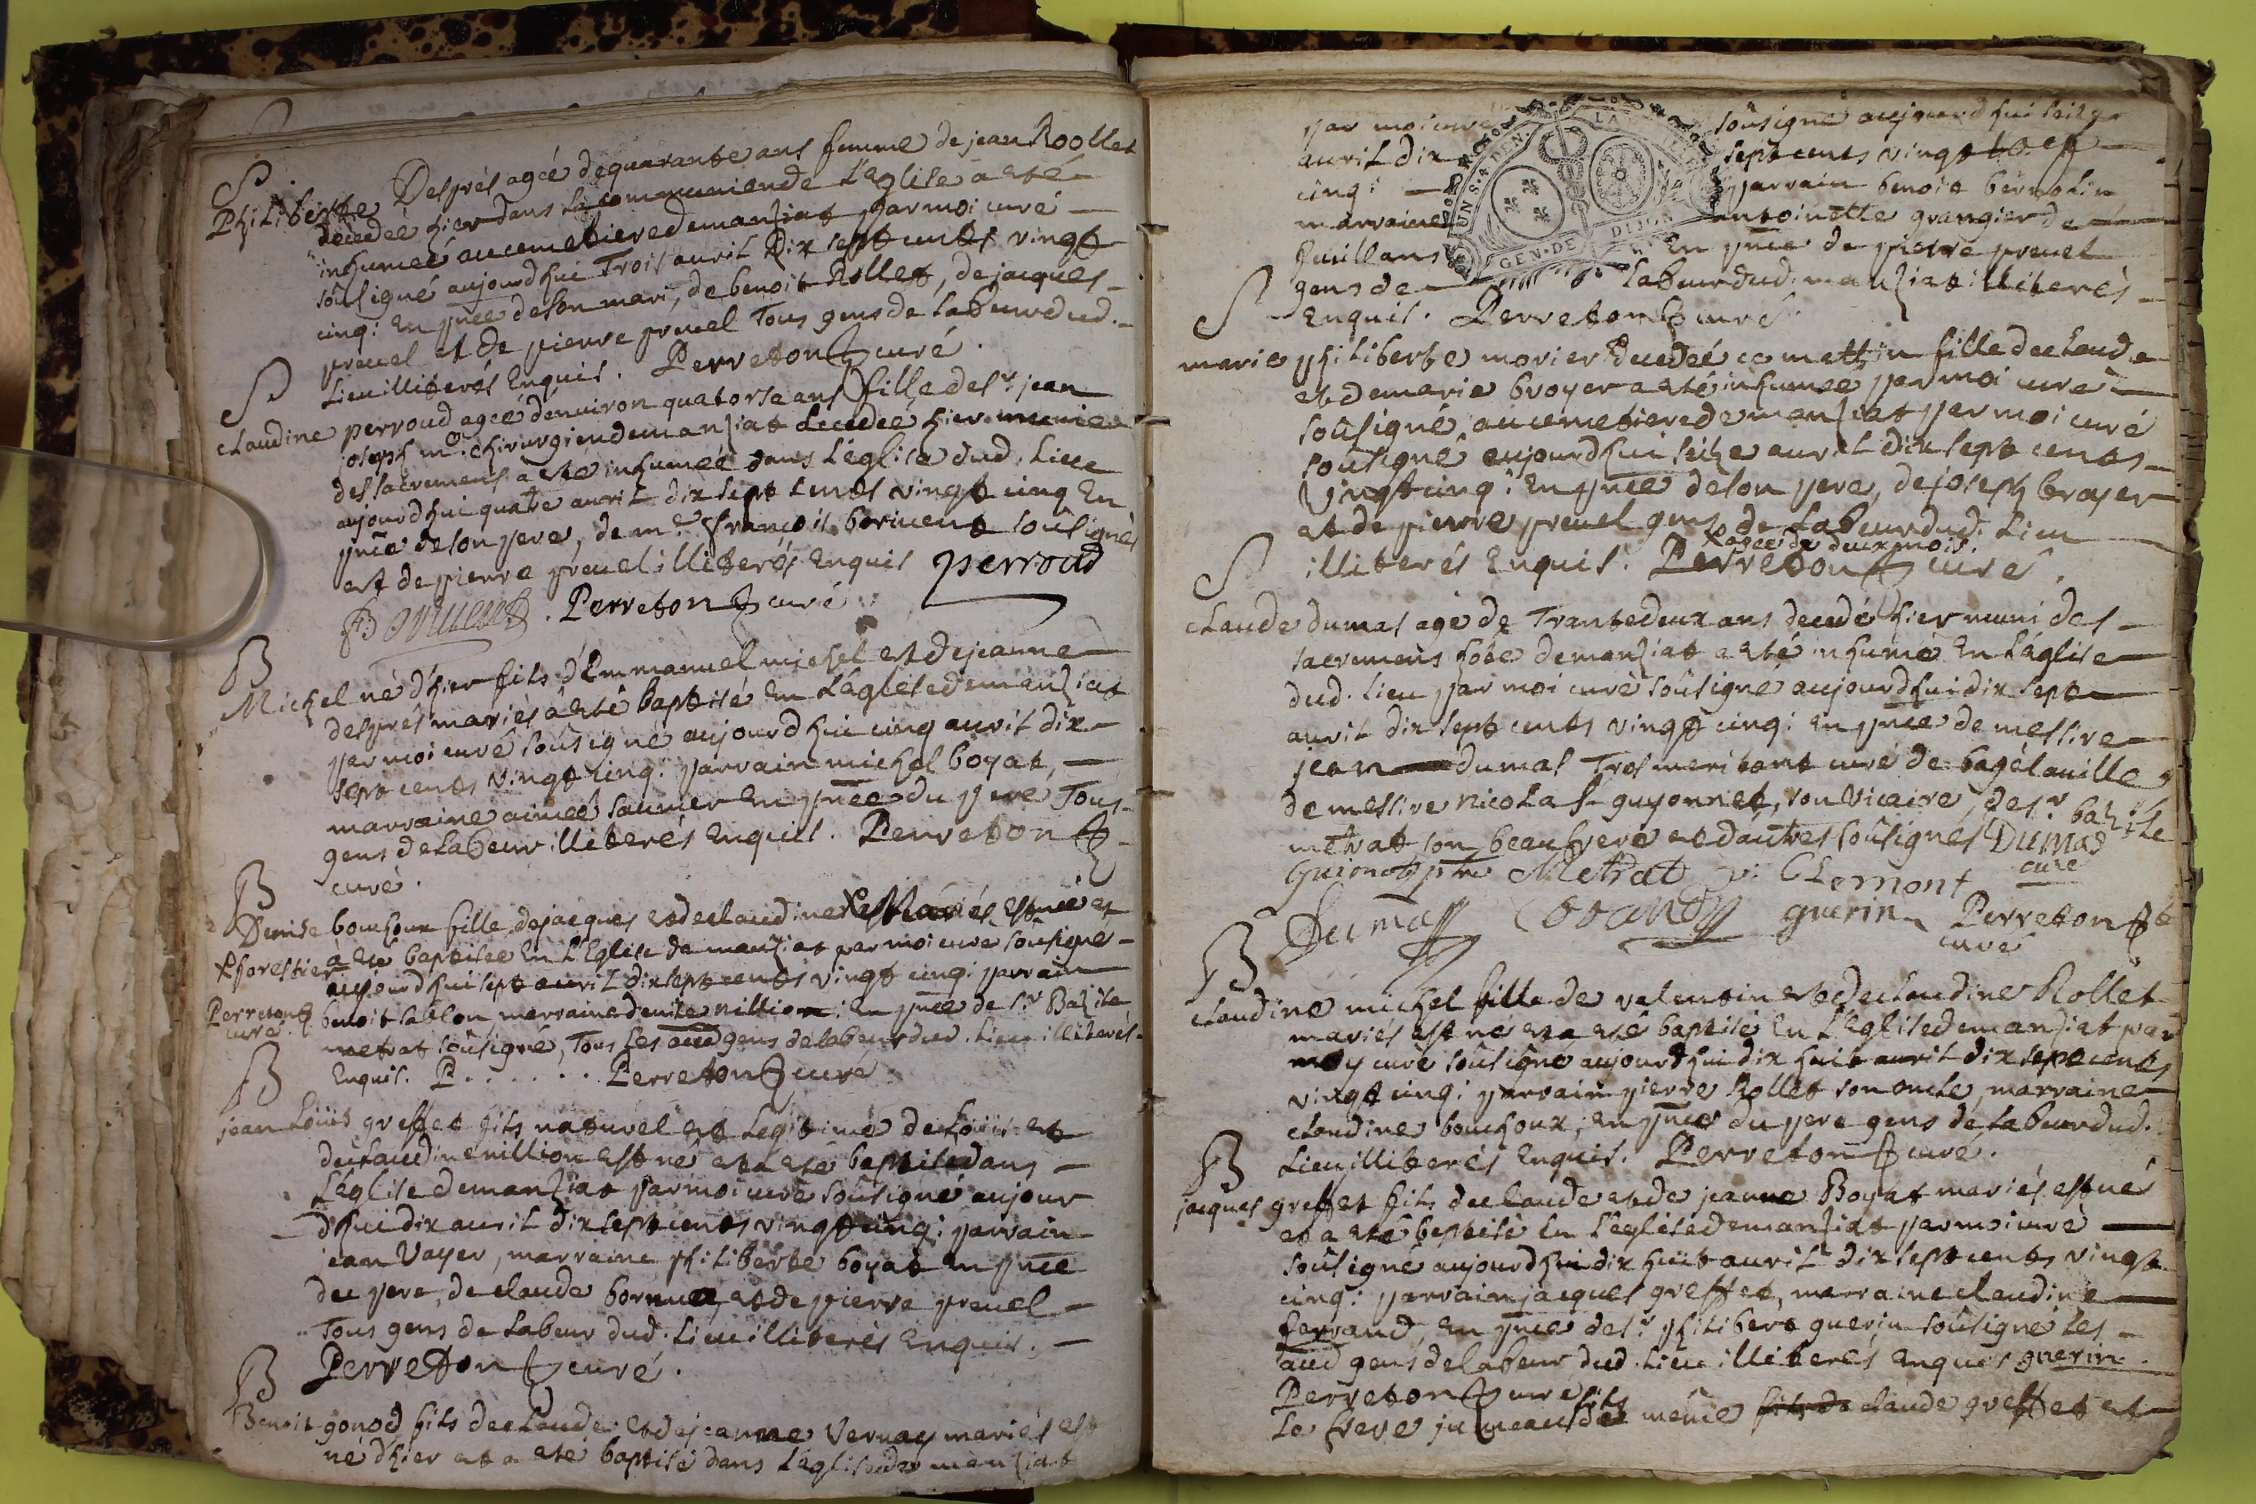 S
Philiberte Desprès ageé de quarante ans femme de jean Roollet
decedeé hier dans la communion de L'Eglise a eté
inhumeé au cemetiere de manziat par moi curé
soûsigné aujourd'hui Trois avril Dix sept cents vingt
cinq: En pnce de son mari, de benoit Rollet, de jacques
preuel et de pierre preuel Tous gens de Labeur dud.
Lieu illiterés Enquis. Perreton curé.
S
claudine perroud ageé denuiron quatorse ans fille de sr jean
joseph me chirurgien de manziat decedeé hier munie
des sacremens a eté inhumeé dans L'église dud. Lieu
aujourd'hui quatre avril dix sept cents vingt cinq En
pnce de son pere, de me françois boriuent soûsignés
et de pierre preuel illiterés Enquis perroud
Boriuent. Perreton curé
B
Michel né d'hier fils d'Emmanuel michel et de jeanne
desprès mariés a eté baptisé En L'église de manziat
par moi curé soûsigné aujourd'hui cinq avril dix
sept cents vingt cinq: parrain michel boyat,
marraine aimeé saunier En pnce du pere Tous
gens de Labeur illiterés Enquis. Perreton
curé.
B
Denise bouchoux fille de jacques et de claudine x mariés est neé et
x forestier
a eté baptisee En L'Eglise de manziat par moi curé soûsigné
aujourd'hui sept avril dix sept cents vingt cinq: parrain
Perreton
curé.
benoit sablon marraine denise nillion: En pnce de sr Bazile
metrat soûsigné, Tous les aud gens de labeur dud. Lieu illiterés
Enquis. P...... Perreton curé
B
jean Loüis greffet fils naturel et Legitime de Loüis et
de claudine nillion est né et a eté baptisé dans
L'église de manziat par moi curé soûsigné aujour
d'hui dix avril dix sept cents vingt cinq: parrain
jean Vayer, marraine philiberte boyat En pnce
du pere, de claude et de pierre preuel
Tous gens de Labeur dud. Lieu illiterés Enquis.
Perreton curé.
B
Benoit gonod fils de claude et de jeanne Vernay mariés est
né d'hier et a eté baptisé dans L'église de manziat
par moi curé soûsigné aujourd'hui seize
avril dix sept cents vingt
cinq: parrain benoit bernolin
marraine antoinette grangier de
fuillans En pnce de pierre preuel
gens de Labeur dud. manziat illiterés
Enquis. Perreton curé.
GEN. DE DIJON
S
marie philiberte morier decedeé ce mattin fille de claude
et de marie broyer a eté inhumeé par moi curé
soûsigné au cemetiere de manziat par moi curé
soûsigné aujourd'hui seize avril dix sept cents
vingt cinq: En pnce de son pere, de joseph broyer
et de pierre preuel gens de Labeur dud. Lieu
x ageé de deux mois.
illiterés Enquis. Perreton curé.
S
claude dumas agé de Trante deux ans decedé hier muni des
sacremens hôte de manziat a eté inhumé En L'église
dud. Lieu par moi curé soûsigné aujourd'hui dix sept
avril dix sept cents vingt cinq: En pnce de messire
jean dumas Tres meritant curé de bagé la uille
de messire nicolas guyonnet, son Vicaire, de sr bazile
metrat son beaufrere et d'autres soûsignés Dumas
curé
Guionet ptre Metrat Clemont
Dumas guerin Perreton
curé
B
claudine michel fille de valentin et de claudine Rollet
mariés est né et a eté baptisé En L'Eglise de manziat par
moy curé soûsigné aujourd'hui dix huit avril dix sept cents
vingt cinq: parrain pierre Rollet son oncle, marraine
claudine bouchoux, en pnce du pere gens de Labeur dud.
Lieu illiterés Enquis. Perreton curé.
B
jacques greffet fils de claude et de jeanne Boyat mariés est né
et a eté baptisé En L'église de manziat par moi curé
soûsigné aujourd'hui dix huit avril dix sept cents vingt
cinq: parrain jacques greffet, marraine claudine
ferrand, En pnce de sr philibert guerin soûsigné les
aud gens de labeur dud. Lieu illiterés Enquis guerin.
Perreton curé
Le frere jumeau fils du même claude greffet et